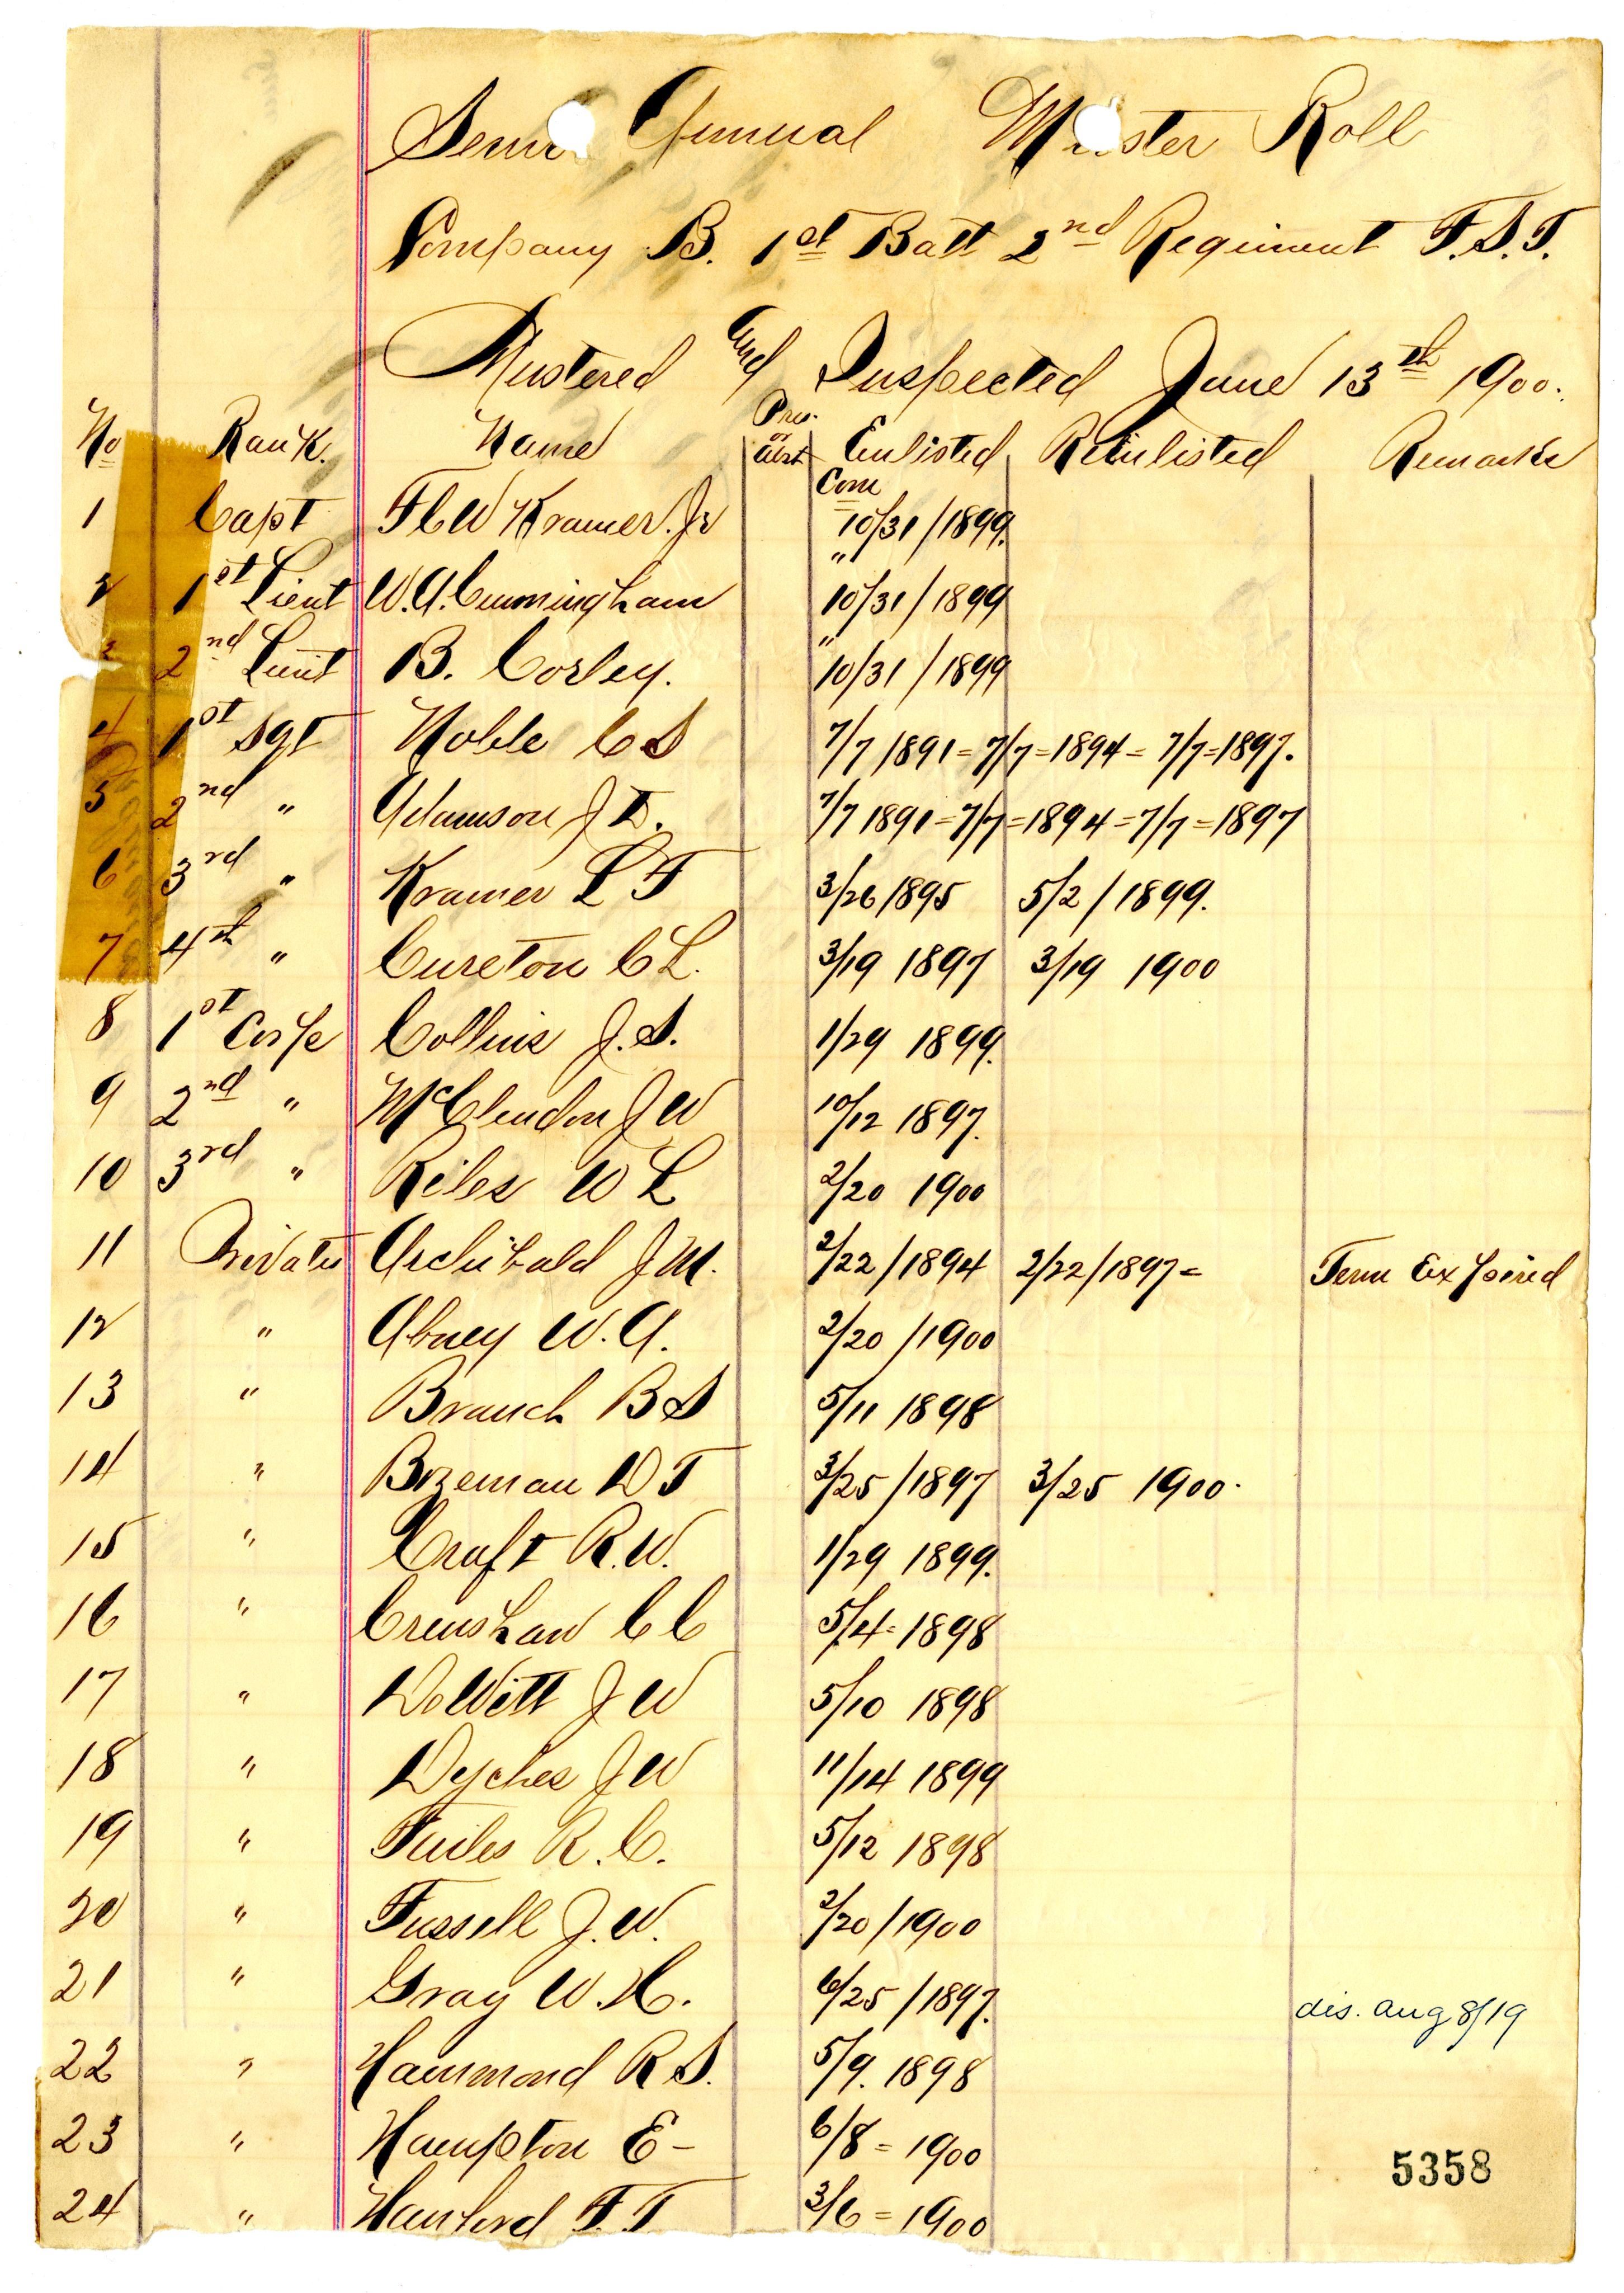 Semi Annual Muster Roll
Company B. 1st Batt 2nd Regiment F.S.T.
Mustered and Inspected June 13th 1900.
No Rank. Name Pres. or Abst Enlisted Reenlisted Remarks
Com
1 Capt F C W Kramer. Jr 10/31/1899.
"
2 1st Lieut W. A. Cunningham 10/31/1899
"
3 2nd Lieut B. Corley. 10/31/1899
4 1st Sgt Noble C S 7/7 1891 = 7/7 = 1894 = 7/7 = 1897.
5 2nd " Adamson J D. 7/7 1891 = 7/7 = 1894 = 7/7 = 1897
6 3rd " Kramer L F 3/26 1895 5/2/1899.
7 4th " Cureton C L. 3/19 1897 3/19 1900
8 1st Corp Collins J. S. 1/29 1899.
9 2nd " McClendon J W 10/12 1897.
10 3rd " Riles W L 2/20 1900
11 Private Archibald J M. 2/22/1894 2/22/1897 = Term Expired
12 " Abney W. A. 2/20/1900
13 " Branch B S 5/11 1898
14 " Bozeman D T 3/25/1897 3/25 1900.
15 " Craft R. W. 1/29 1899.
16 " Crenshaw C C 5/4 = 1898
17 " DeWitt J W 5/10 1898
18 " Dyches J W 11/14 1899
19 " R. C. 5/12 1898
20 " Fussell J. W. 2/20/1900
21 " Gray W. H. 6/25/1897. dis. aug 8/19
22 " Hammond R S. 5/9. 1898
23 " Hampton E - 6/8 = 1900
24 " Hanford F. T 3/6 = 1900
5358